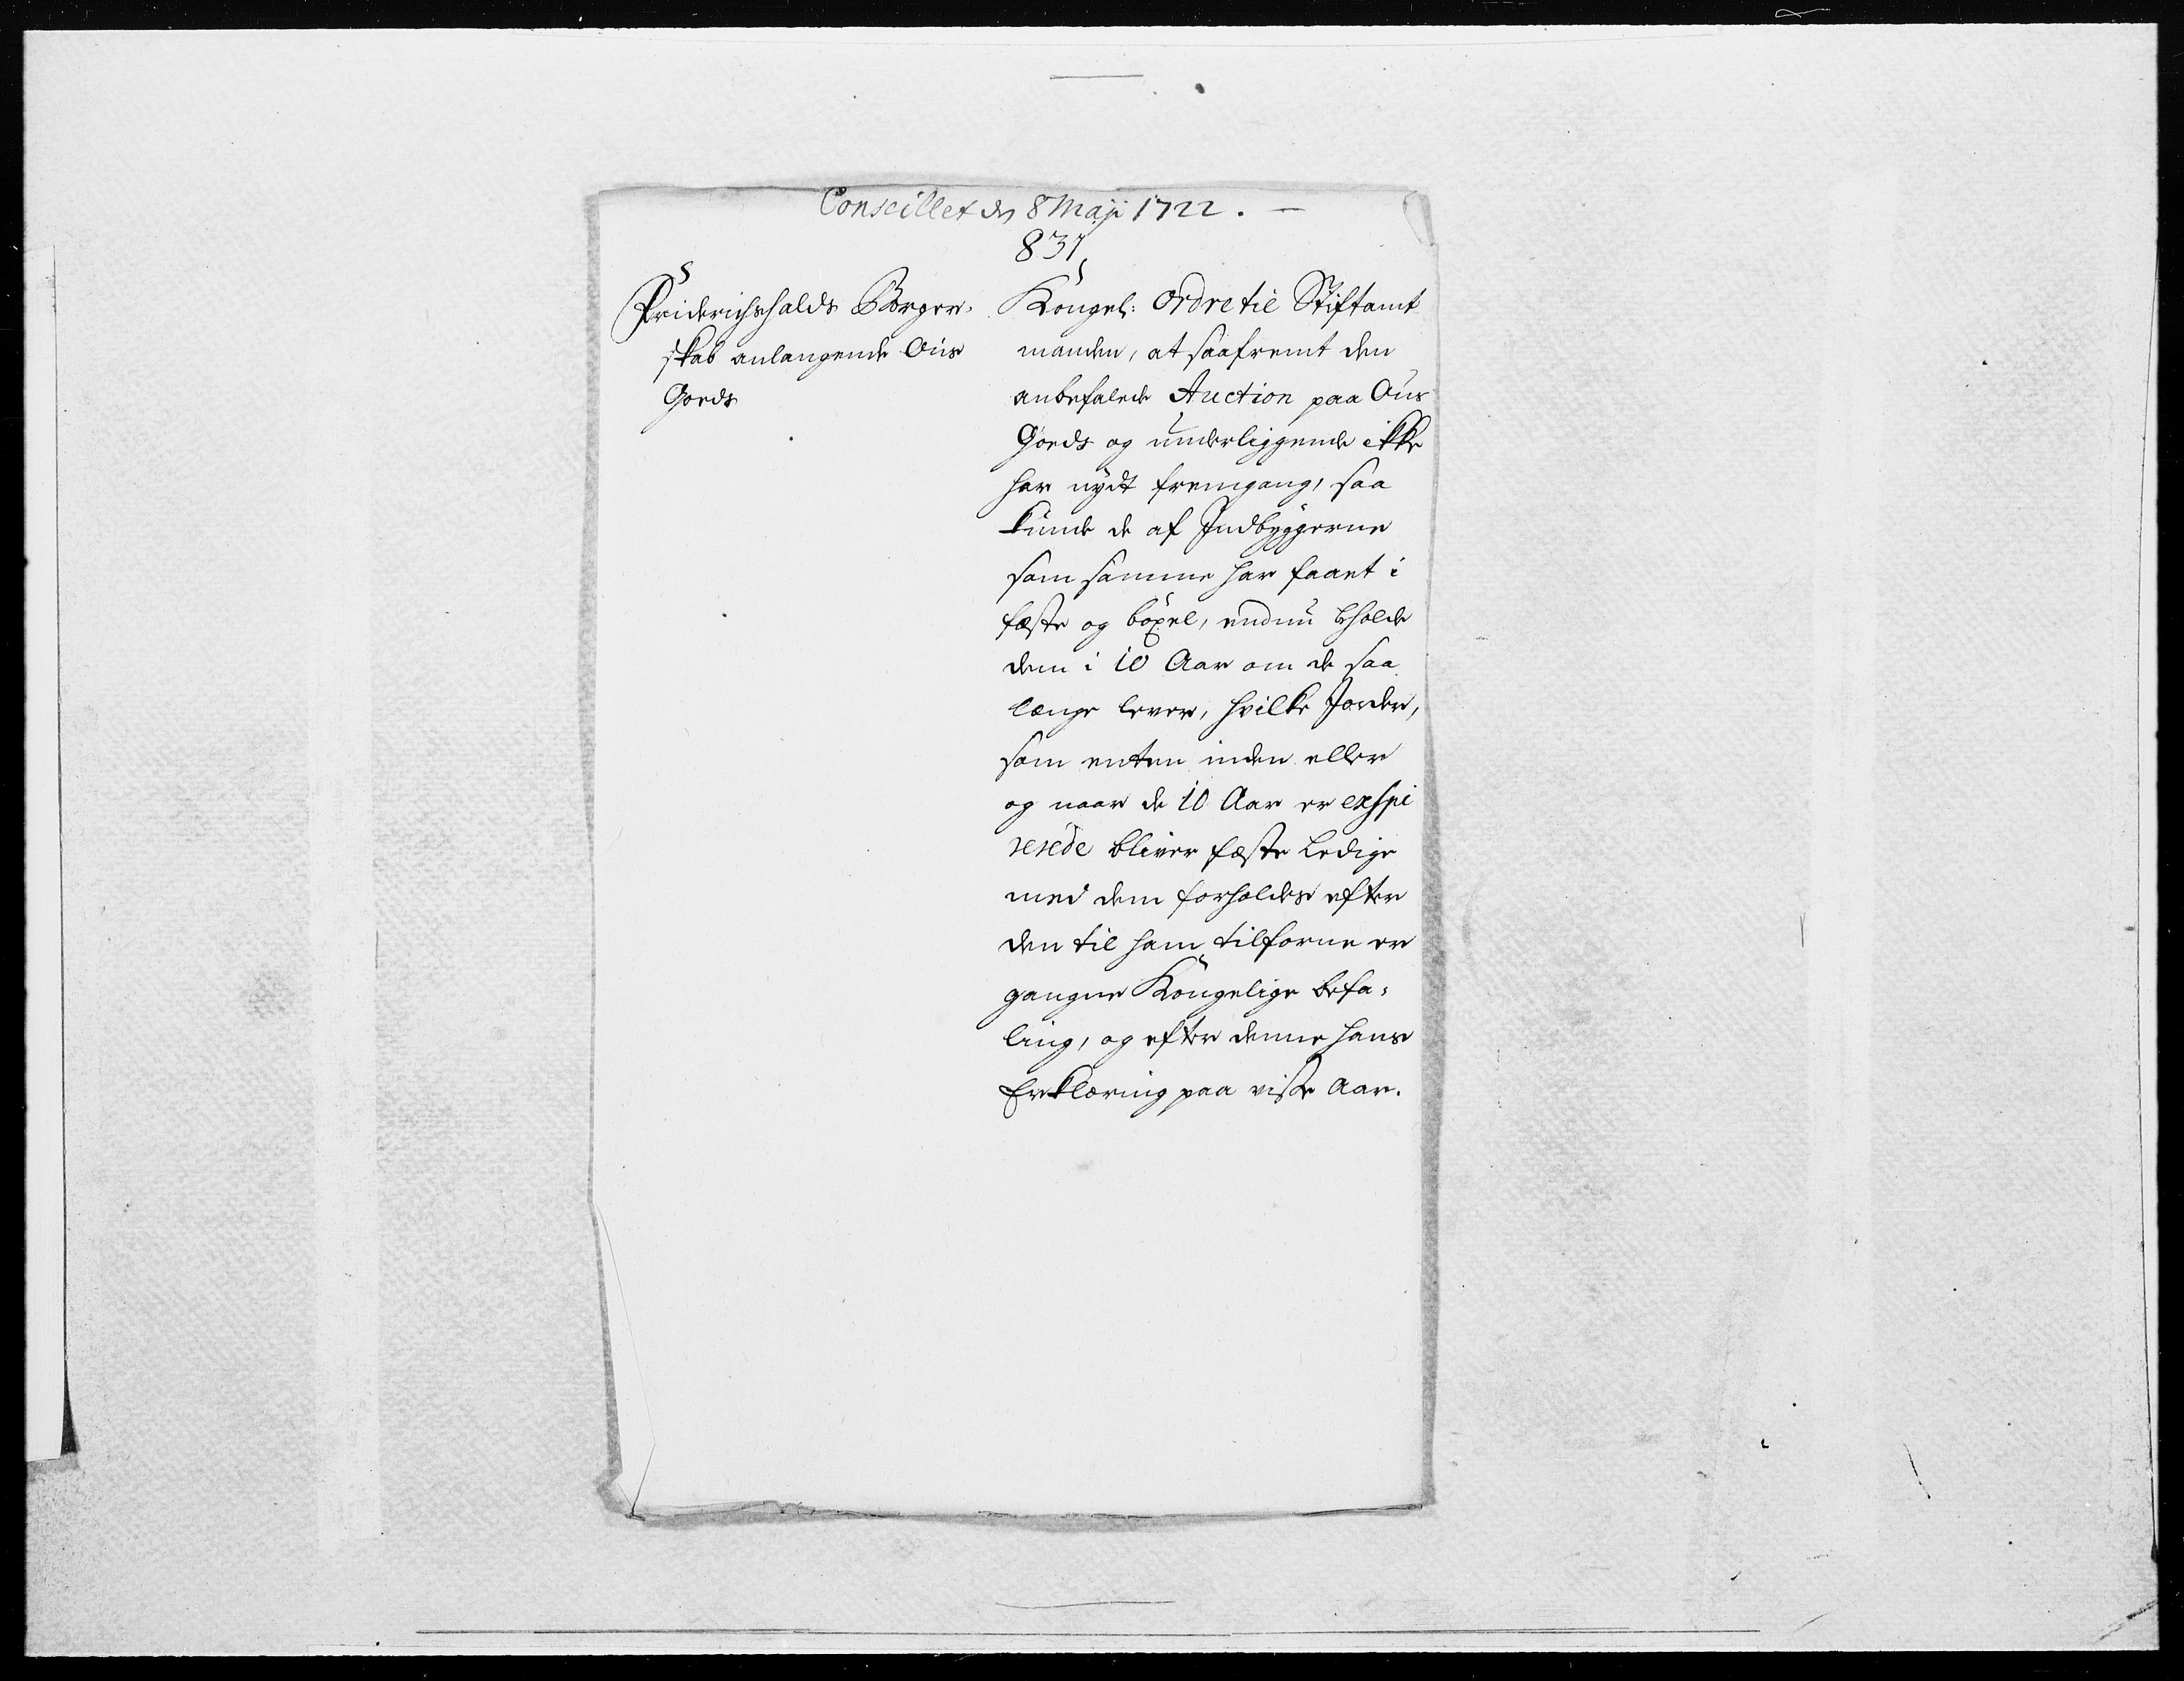 Conseillet dn 8 Maji 1722. —
831
Friderichshalds Borger-
skab anlangende Ous
Gods
Kongel: Ordre til Stiftamt
manden, at saafremt den
anbefalede Auction paa Ous
Gods og underliggende ikke
har nydt fremgang, saa
kunde de af Indbyggerne
som samme har faaet i
fæste og böxel, endnu beholde
dem i 10 Aar om de saa
længe lever, hvilke Jorder,
som enten inden eller
og naar de 10 Aar er exspi
rerede bliver fæste Ledige
med dem forholdes efter
den til ham tilforne er
gangne Kongelige befa-
ling, og efter denne hans
Erklæring paa visse Aar.